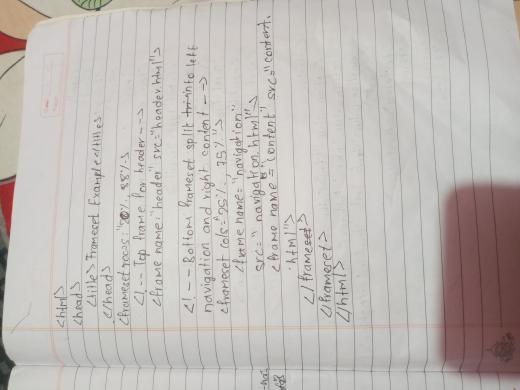 <html>
<head>
<title> Frameset Example</title>
</head>
<frameset rows="20%, 88%>
<!-- Top frame for header-->
<frame name: "header" src="header.html">
<!-- Bottom frameset split into left
navigation and right content -->
<frameset cols="25%, 75%">
<frame name= "navigation"
src=" navigation.html">
<frame name = content" src="content.
html">
</frameset>
</frameset>
</html>